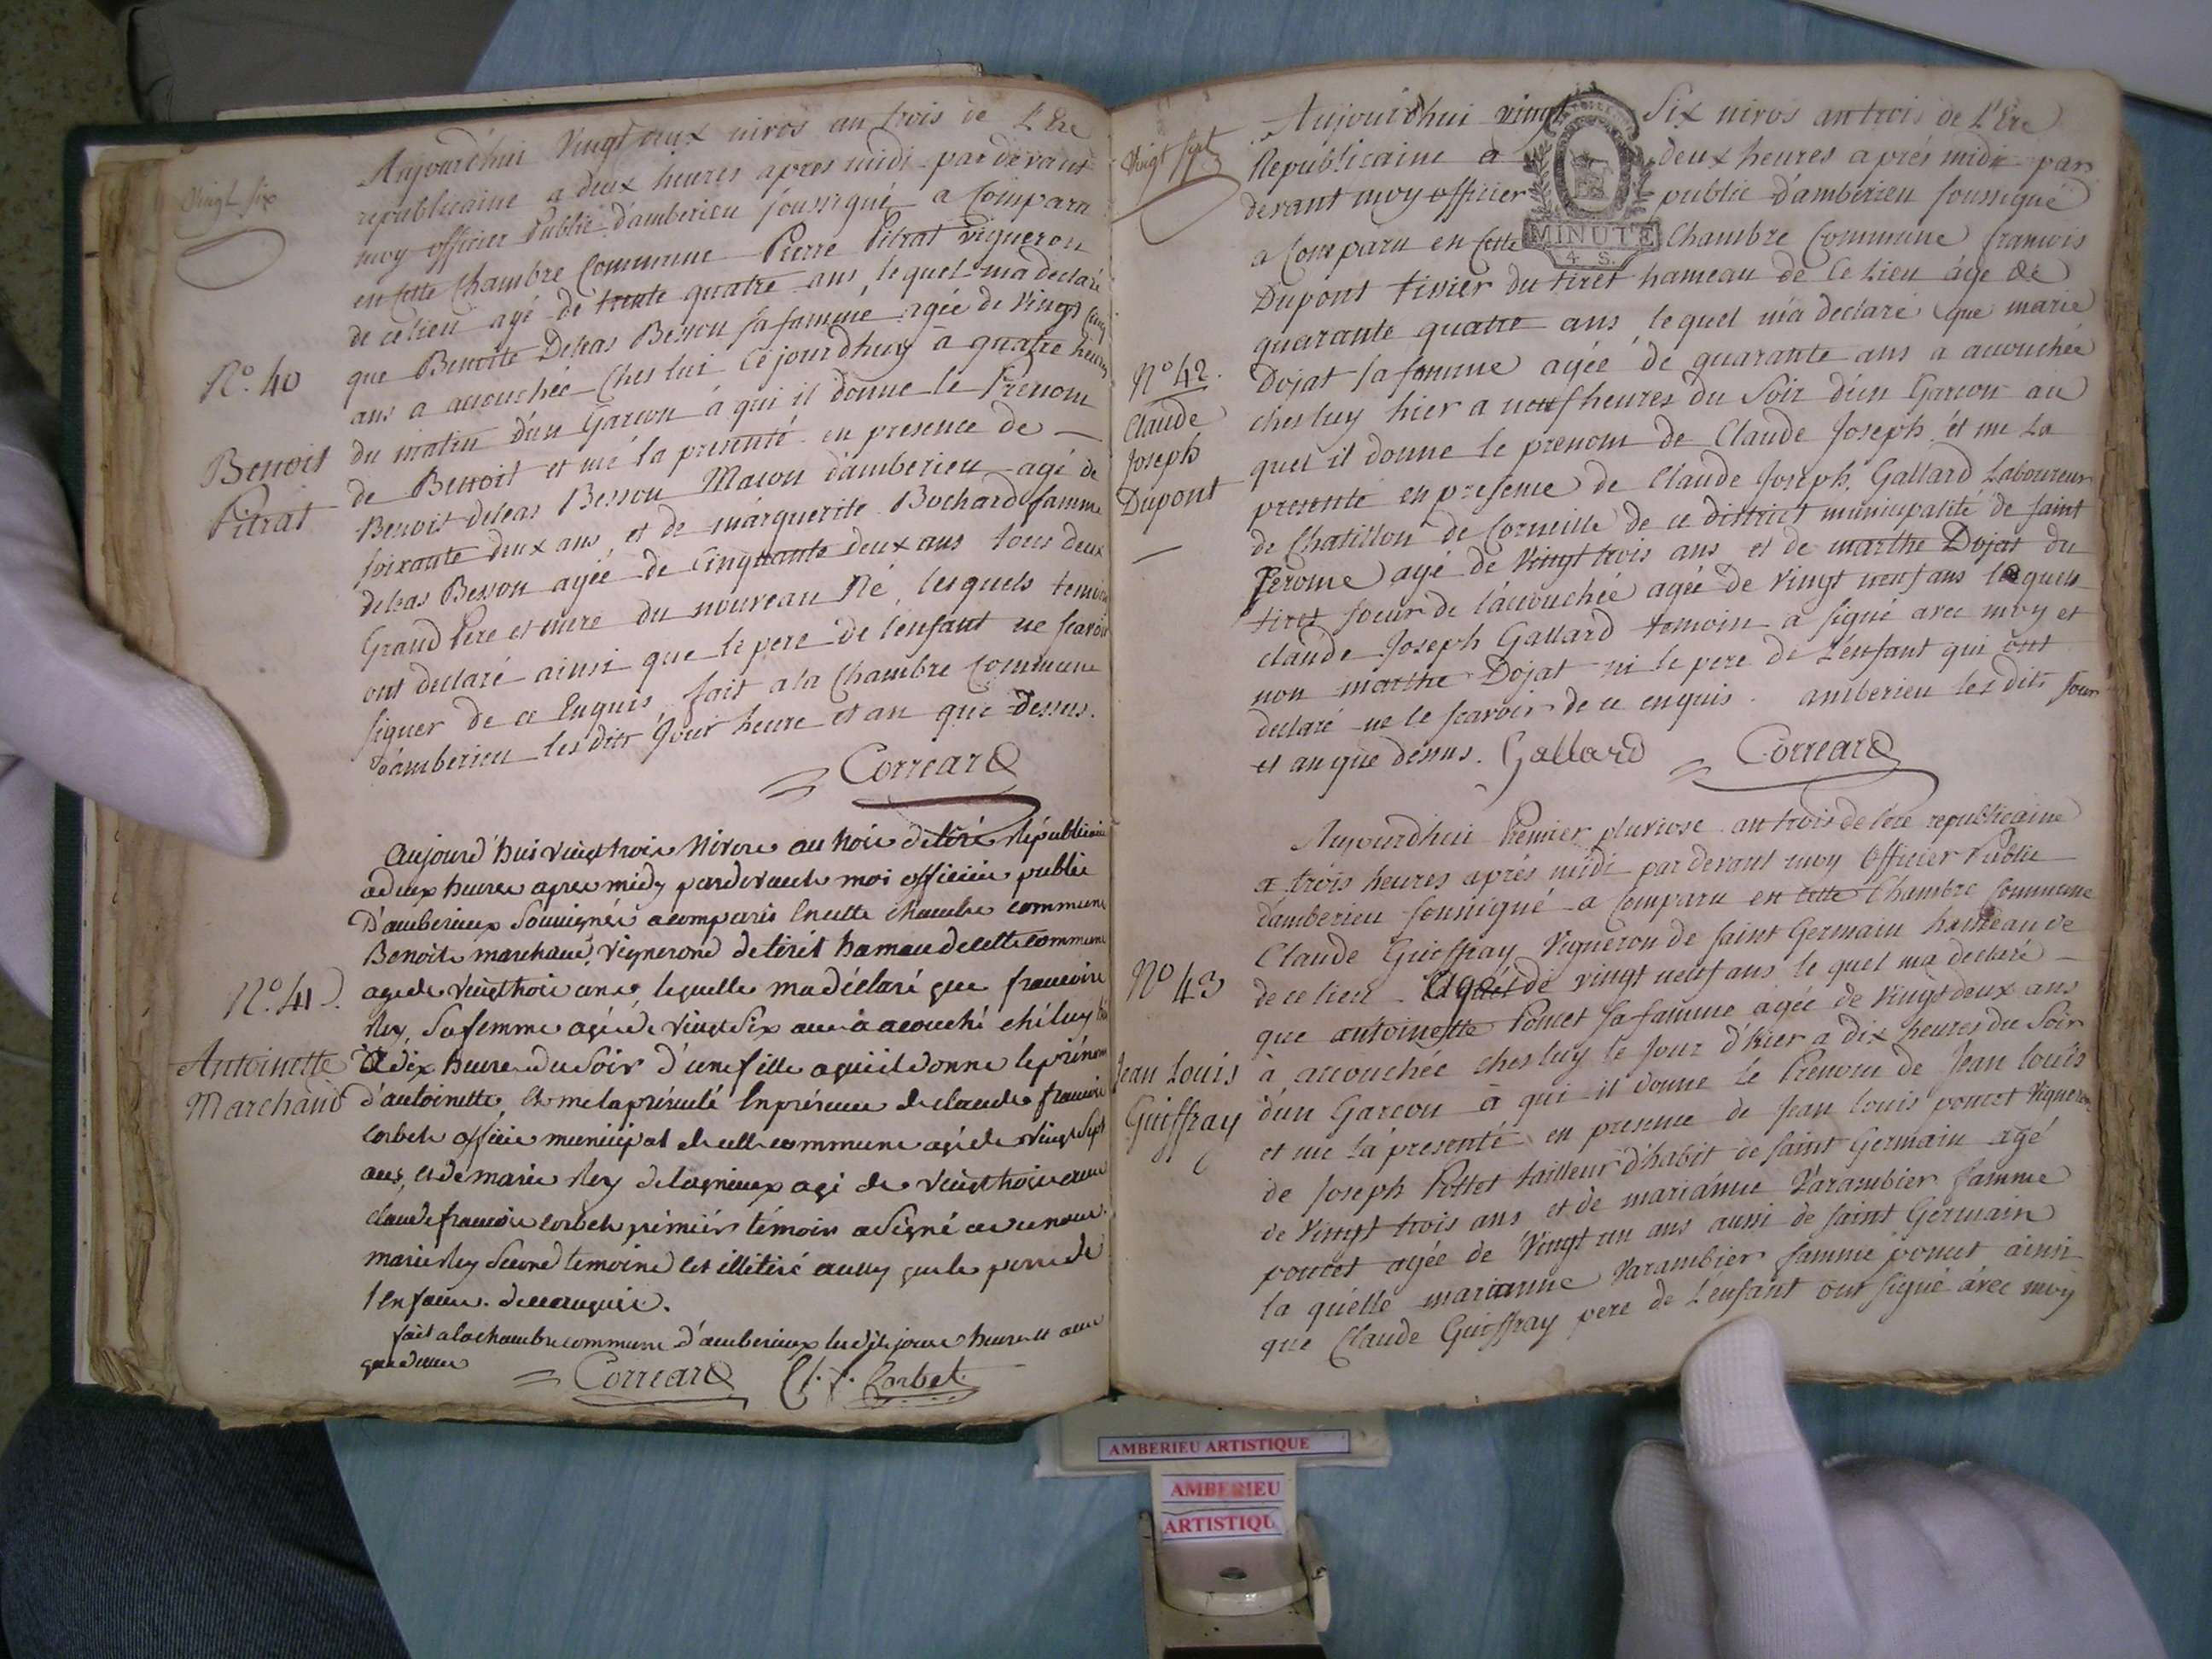 Vingt six
Aujourd'hui Vingt deux nivos an trois de L'Ere
republicaine a deux heures apres midi par devant
moy officier Public d'amberieu soussigné a Comparu
en cette Chambre Commune Pierre Pitrat vigneron
de ce lieu agé de trente quatre ans, lequel ma declaré
que Benoite Deleas Besson sa famme agée de Vingt cinq
ans a accouchée Ches lui Ce jourd'huy à quatre heures
du matin d'un Garcon à qui il donne le Prenom
de Benoit et me la presenté en presence de
Benoit deleas Besson Macon d'amberieu agé de
soixante deux ans et de marguerite Bochard famme
deleas Besson agée de Cinquante deux ans tous deux
Grand Pere et mere du nouveau Né, lesquels temoins
ont declaré ainsi que le pere de l'enfant ne scavoir
signer de ce Enquis, fait a la Chambre Commune
d'amberieu les dits Jour heure et an que Dessus.
Correard
N.o 40
Benoit
Pitrat
aujourd'hui vingt trois Nivose an trois de l'éré républicaine
a deux heures apres midy pardevant moi officier public
D'amberieux Soussignée a comparu En cette chambre commune
Benoit marchand, vignerond de tirét hamau de cette commune
agé de vingt trois ans, lequelle ma déclaré que francoise
Rey, Sa femme agée de vingt Six ans à acouché ché luy
a dix heures du Soir d'une fille a qui il donne le prénom
d'antoinette, Et me la présenté En présence de claude francois
corbet officié municipal de cette commune agé de vingt Sept
ans, et de marie Rey de lagnieux agé de vingt trois ans
claude francois corbet prémiér témoin a Signé avec nous.
marie Rey Second temoine est illetiré aussy que le perre de
l'enfant. de ce anquis.
fait a la chambre commune d'amberieux lesdits jour heure et an
que dessus
Correard Cl. f. Corbet
N.o 41
Antoinette
Marchand
Vingt sept
Aujourdhui vingt Six nivos an trois de L'Ere
Republicaine a deux heures aprés midi par
devant moy officier public d'amberieu soussigné
a Comparu en cette Chambre Commune francois
MINUTE
4 S.
Dupont tissier du tiret hameau de Ce Lieu âge de
quarante quatre ans, lequel m'a declaré que marie
Dojat sa femme agée de quarante ans a accouchée
ches luy hier a neuf heures du Soir d'un Garcon au
quel il donne le prenom de Claude Joseph, et me La
presenté en presence de Claude Joseph Gallard Laboureur
de Chatillon de Corneille de ce district municipalité de saint
Jerome agé de Vingt trois ans et de marthe Dojat du
tiret soeur de l'accouchée agée de vingt neuf ans lesquels
claude Joseph Gallard temoin a signé avec moy et
non marthe Dojat ni le pere de L'enfant qui ont
declaré ne le scavoir de ce enquis. amberieu les dits jour
et an que dessus. Gallard Correard
N.o 42.
Claude
Joseph
Dupont
Aujourd'hui Premier pluviose an trois de l'ére republicaine
a trois heures aprés midi par devant moy Officier Public
d'amberieu soussigné a Comparu en cette Chambre Commune
Claude Guiffray Vigneron de saint Germain hameau de
de ce lieu Agé de vingt neuf ans le quel ma declaré
que antoinette Poncet sa famme agée de Vingt deux ans
à accouchée ches luy le Jour d'hier a dix heures du Soir
d'un Garcon à qui il donne Le Prenom de Jean Louis
et me la presenté en presence de Jean Louis poncet Vigneron
de Joseph Pottet tailleur d'habit de saint Germain agé
de Vingt trois ans et de marianne Varambier famme
poncet agée de Vingt un ans aussi de saint Germain
la quelle marianne Varambier famme poncet ainsi
que Claude Guiffray pere de L'enfant ont signé avec moy
N.o 43
Jean Louis
Guiffray
AMBERIEU ARTISTIQUE
AMBERIEU
ARTISTIQU